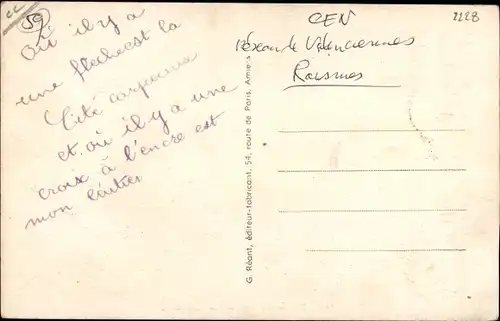 59
Où il y a
une flèche est la
Cité
et où il y a une
croix à l'encre est
mon
CEN
2228
réseau de Valenciennes
Raismes
G. Réant, éditeur-fabricant, 54, route de Paris, Amiens